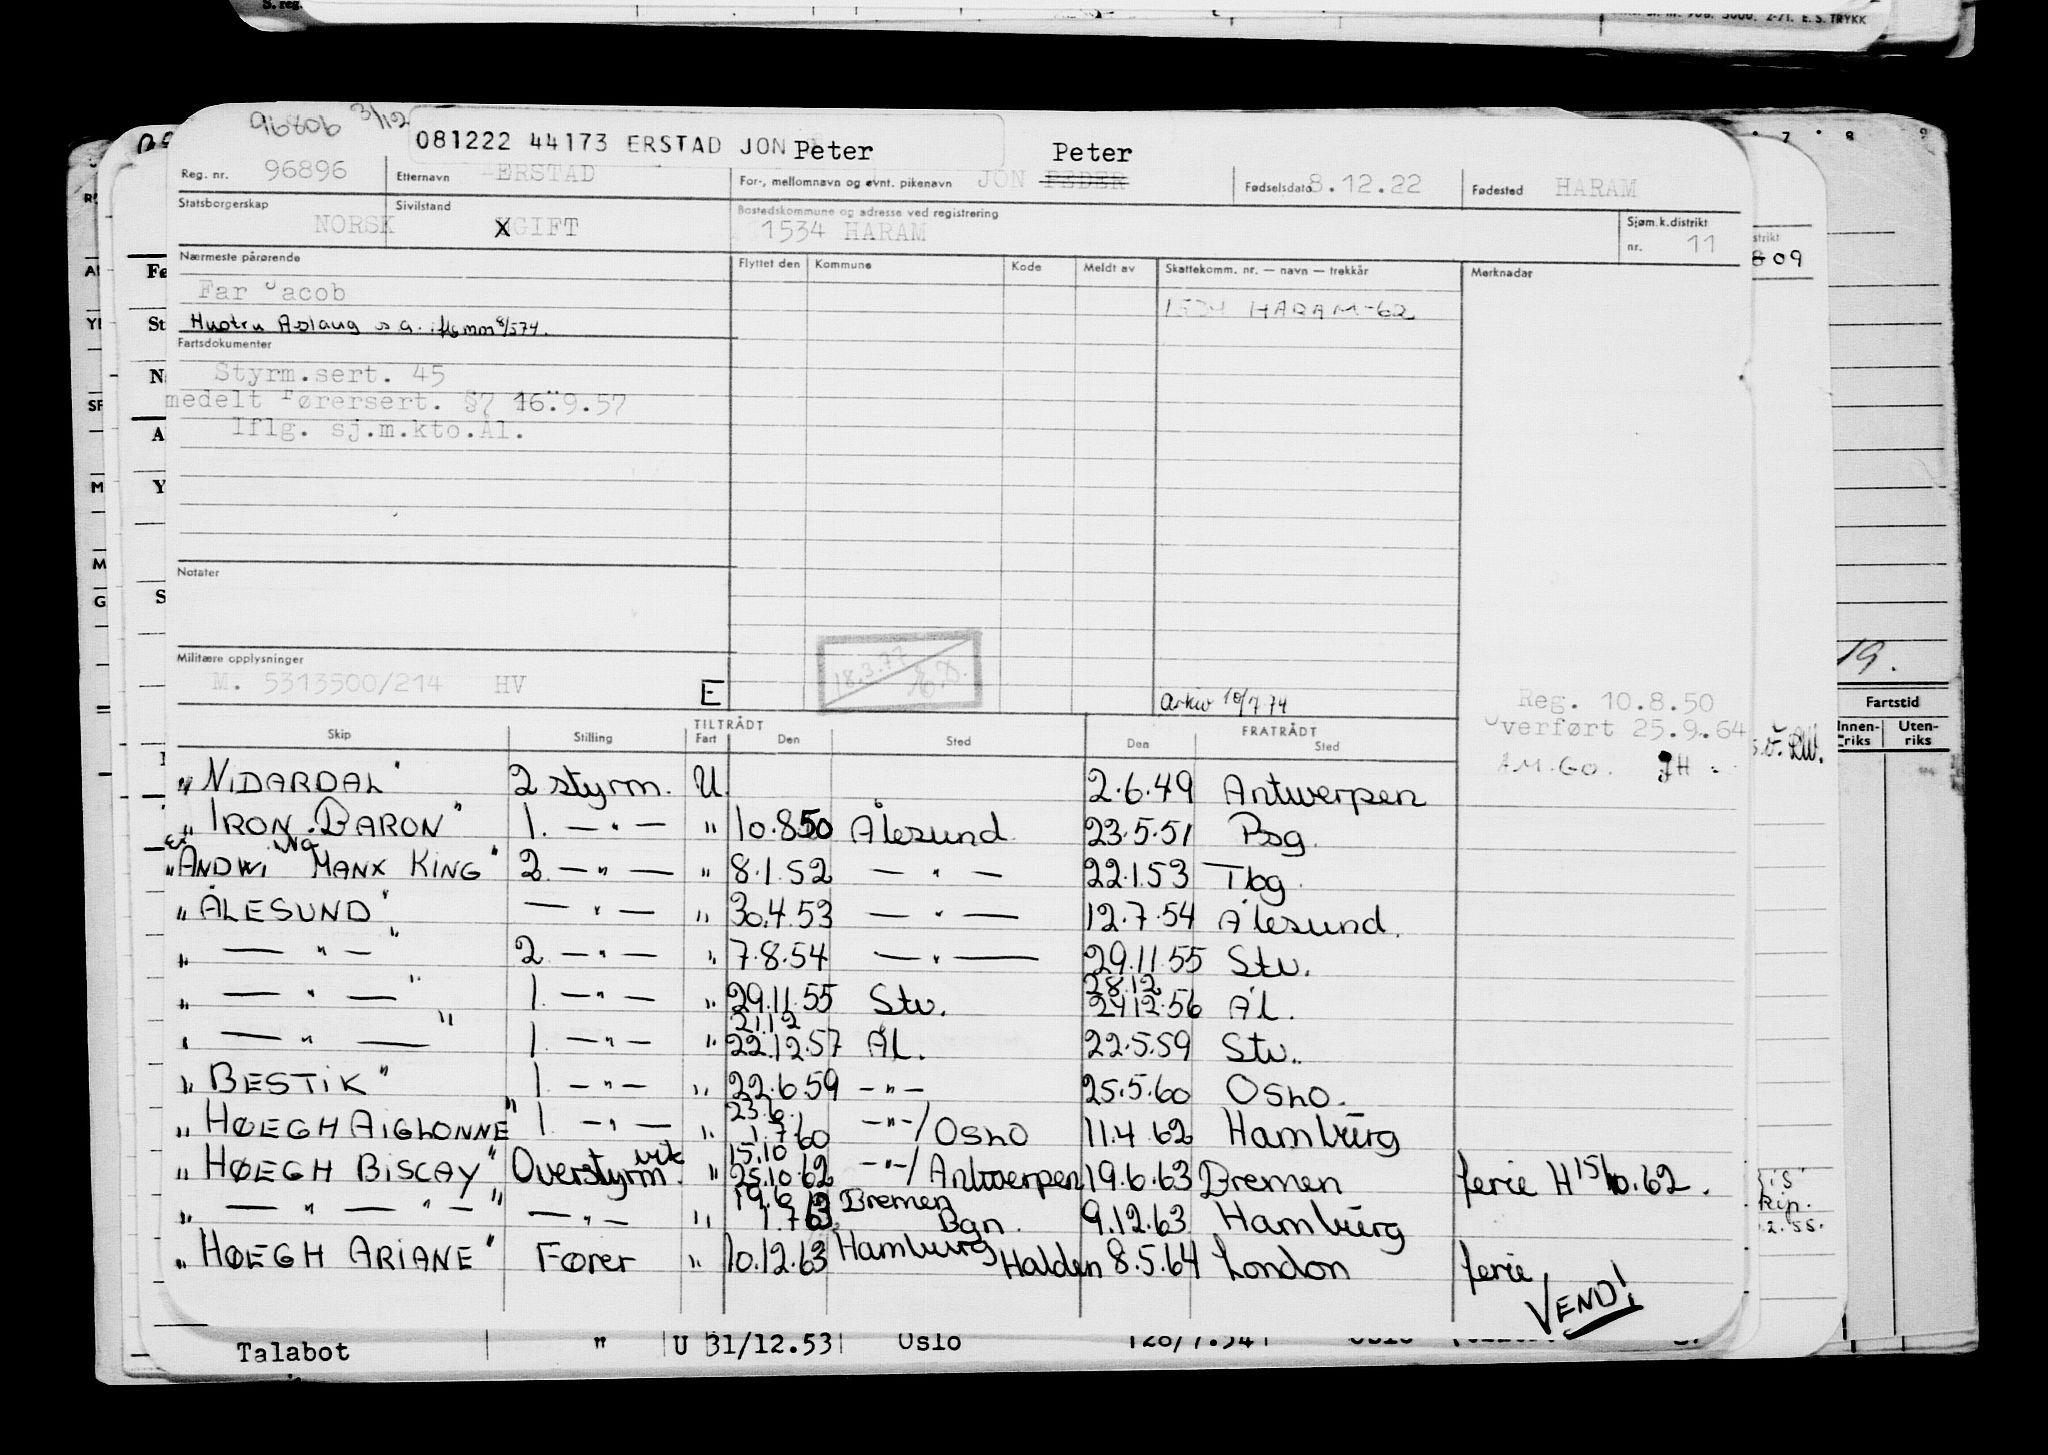 S. reg.
5000. 2-71. E. S. TRYKK
96806 3/12
081222 44173 ERSTAD JON Peter Peter
Reg. nr. 96896 Etternavn ERSTAD For-, mellomnavn og evnt. pikenavn JON PEDER Fødselsdato 8.12.22 Fødested HARAM
Statsborgerskap NORSK Sivilstand XGIFT Bostedskommune og adresse ved registrering 1534 HARAM Sjøm.k.distrikt nr. 11
Nærmeste pårørende Flyttet den Kommune Kode Meldt av Skattekomm. nr. — navn — trekkår Merknader
Far Jacob 1534 HARAM-62
Hustru Aslaug s.a. iflg mm 8/574.
Fartsdokumenter
Styrm.sert. 45
medelt Førersert. §7 16.9.57
Iflg. sj.m.kto.Ål.
Notater
18.3.77
Militære opplysninger
M. 5313500/214 HV E
Arkiv 10/7 74
Reg. 10.8.50
Overført 25.9.64
A.M.GO. JH.
Skip Stilling TILTRÅDT Fart Den Sted FRATRÅDT Den Sted
"NIDARDAL" 2 styrm. U. 2.6.49 Antwerpen
"IRON BARON" 1. — " — " 10.8.50 Ålesund 23.5.51 Bsg.
"ANDWI Ex MANX KING" 2 — " — " 8.1.52 — " — 22.1.53 Tbg.
"ÅLESUND" — " — " 30.4.53 — " — 12.7.54 Ålesund.
" — " — " 2 — " — " 7.8.54 — " — 29.11.55 Stv.
" — " — " 1. — " — " 29.11.55 Stv. 28.12 2412.56 Ål.
" — " — " 1. — " — " 21.12 22.12.57 Ål. 22.5.59 Stv.
"BESTIK" 1. — " — " 22.6.59 — " — 25.5.60 OSLO.
"HØEGH AIGLONNE" 1. — " — " 23.6. 1.7 60 — " — / OSLO 11.4 62 Hamburg
"HØEGH BISCAY" Overstyrm. vik " 15.10 25.10.62 — " — / Antwerpen 19.6.63 Bremen ferie H 15/10.62.
" — " — " — " — " — " 19.6 1.7 63 Bremen Bgn. 9.12.63 Hamburg
"HØEGH ARIANE" Fører " 10.12.63 Hamburg Halden 8.5.64 London ferie
VEND!
Talabot " U 31/12.53 Oslo
7 8 9
strikt
8 09
19.
Fartstid
Innenriks Utenriks
RW.